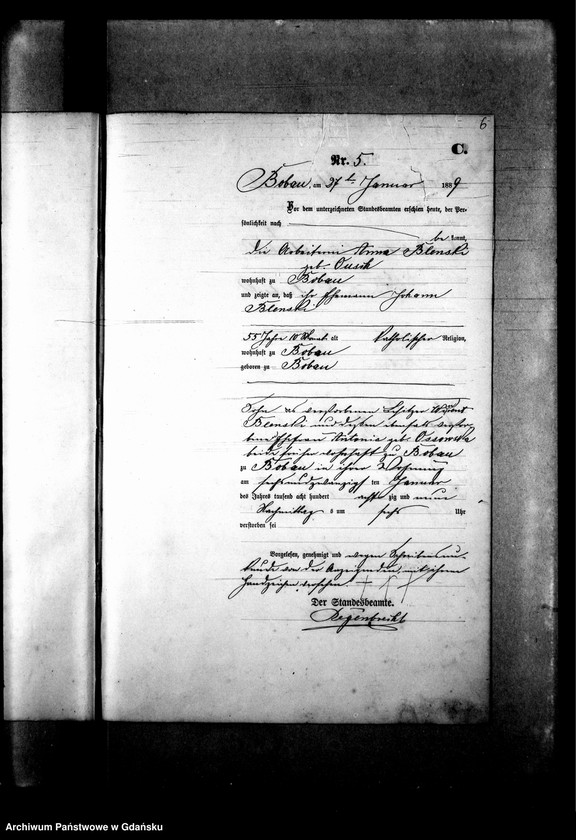 6
C.
Nr. 5.
Bobau, am 27 ten Januar 1889
Vor dem unterzeichneten Standesbeamten erschien heute, der Per-
sönlichkeit nach
be kannt,
die Arbeiterin Anna Blenski
geb.
wohnhaft zu Bobau
und zeigte an, daß ihr Ehemann Johann
Blenski
55 Jahre 10 Monate alt katholischer Religion,
wohnhaft zu Bobau
geboren zu Bobau
Sohn des verstorbenen Besitzer
Blenski und dessen ebenfalls verstor-
benen Ehefrau Antonia geb. Ossowska
beide früher wohnhaft zu Bobau
zu Bobau in ihrer Wohnung
am sechsundzwanzigsten Januar
des Jahres tausend acht hundert achtzig und neun
Nachmittags um sechs Uhr
verstorben sei
Vorgelesen, genehmigt und wegen Schreibensun-
kunde von der Anzeigenden mit ihrem
Handzeichen versehen + + +
Der Standesbeamte.
Regenbrecht
Archiwum Państwowe w Gdańsku